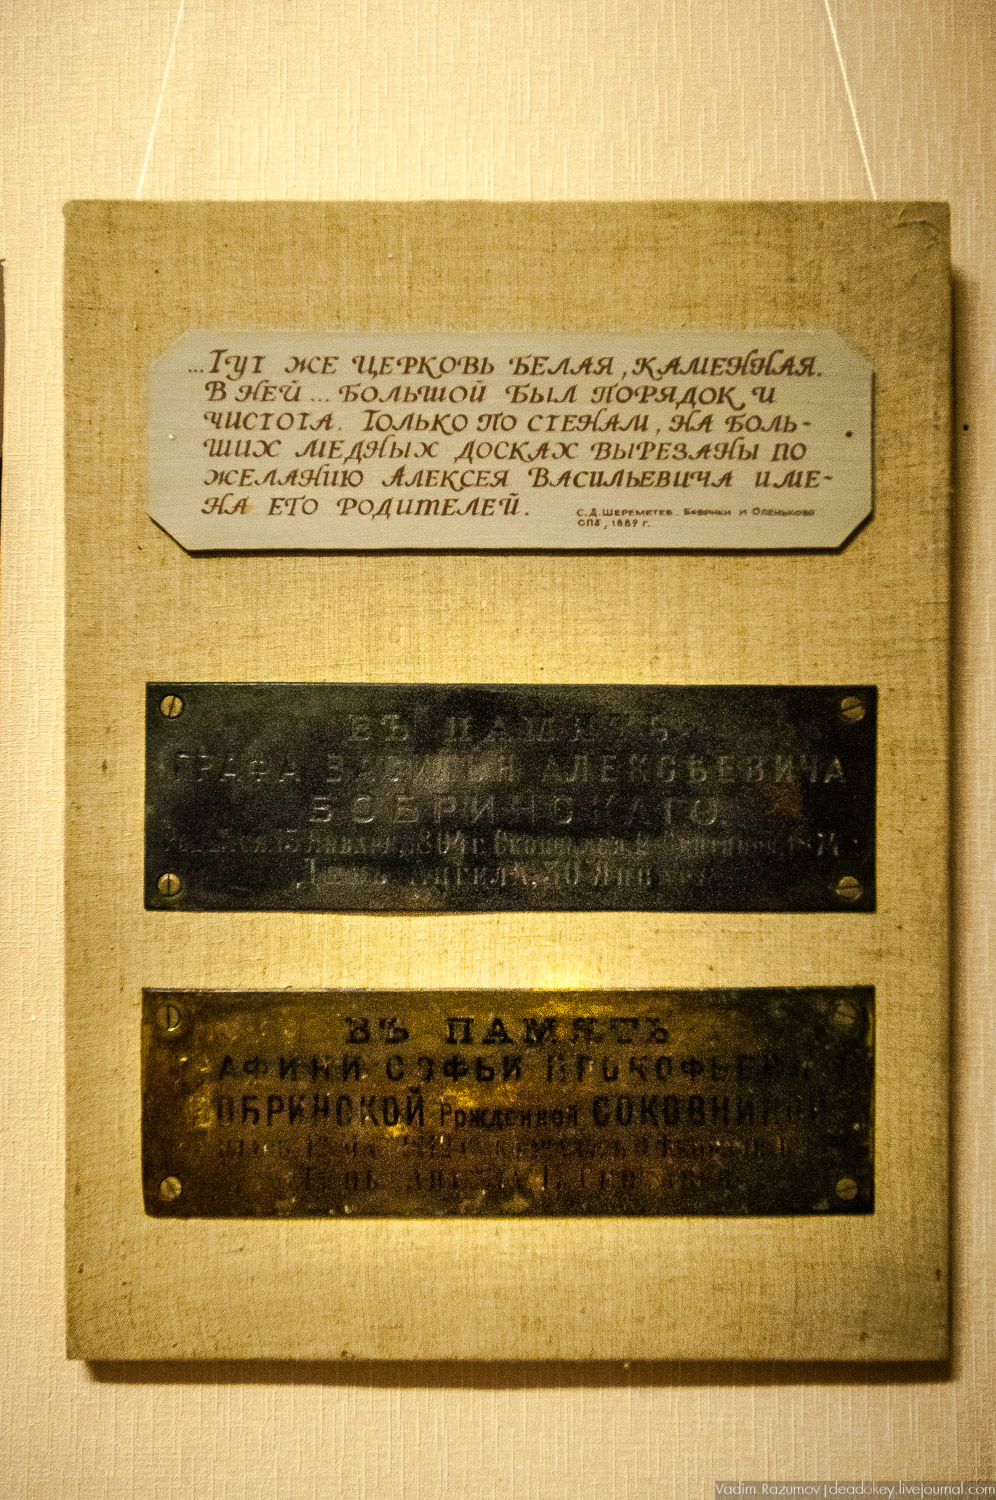 ...Тут же церковь белая, каменная.
В ней... большой был порядок и
чистота. Только по стенам, на боль-
ших медных досках вырезаны по
желанию Алексея Васильевича име-
на его родителей.
С.Д. Шереметев. Бобрики и Оленьково
СПб, 1889 г.
ВЪ ПАМЯТЬ
ГРАФА ВАСИЛЬЯ АЛЕКСѢЕВИЧА
БОБРИНСКАГО
13 Января 1804 г.
День Ангела, 30 Января
ВЪ ПАМЯТЬ
СОФЬИ ПРОКОФЬЕВ
БОБРИНСКОЙ Рожденной СОКОВНИНОЙ
Vadim Razumov | deadokey.livejournal.com